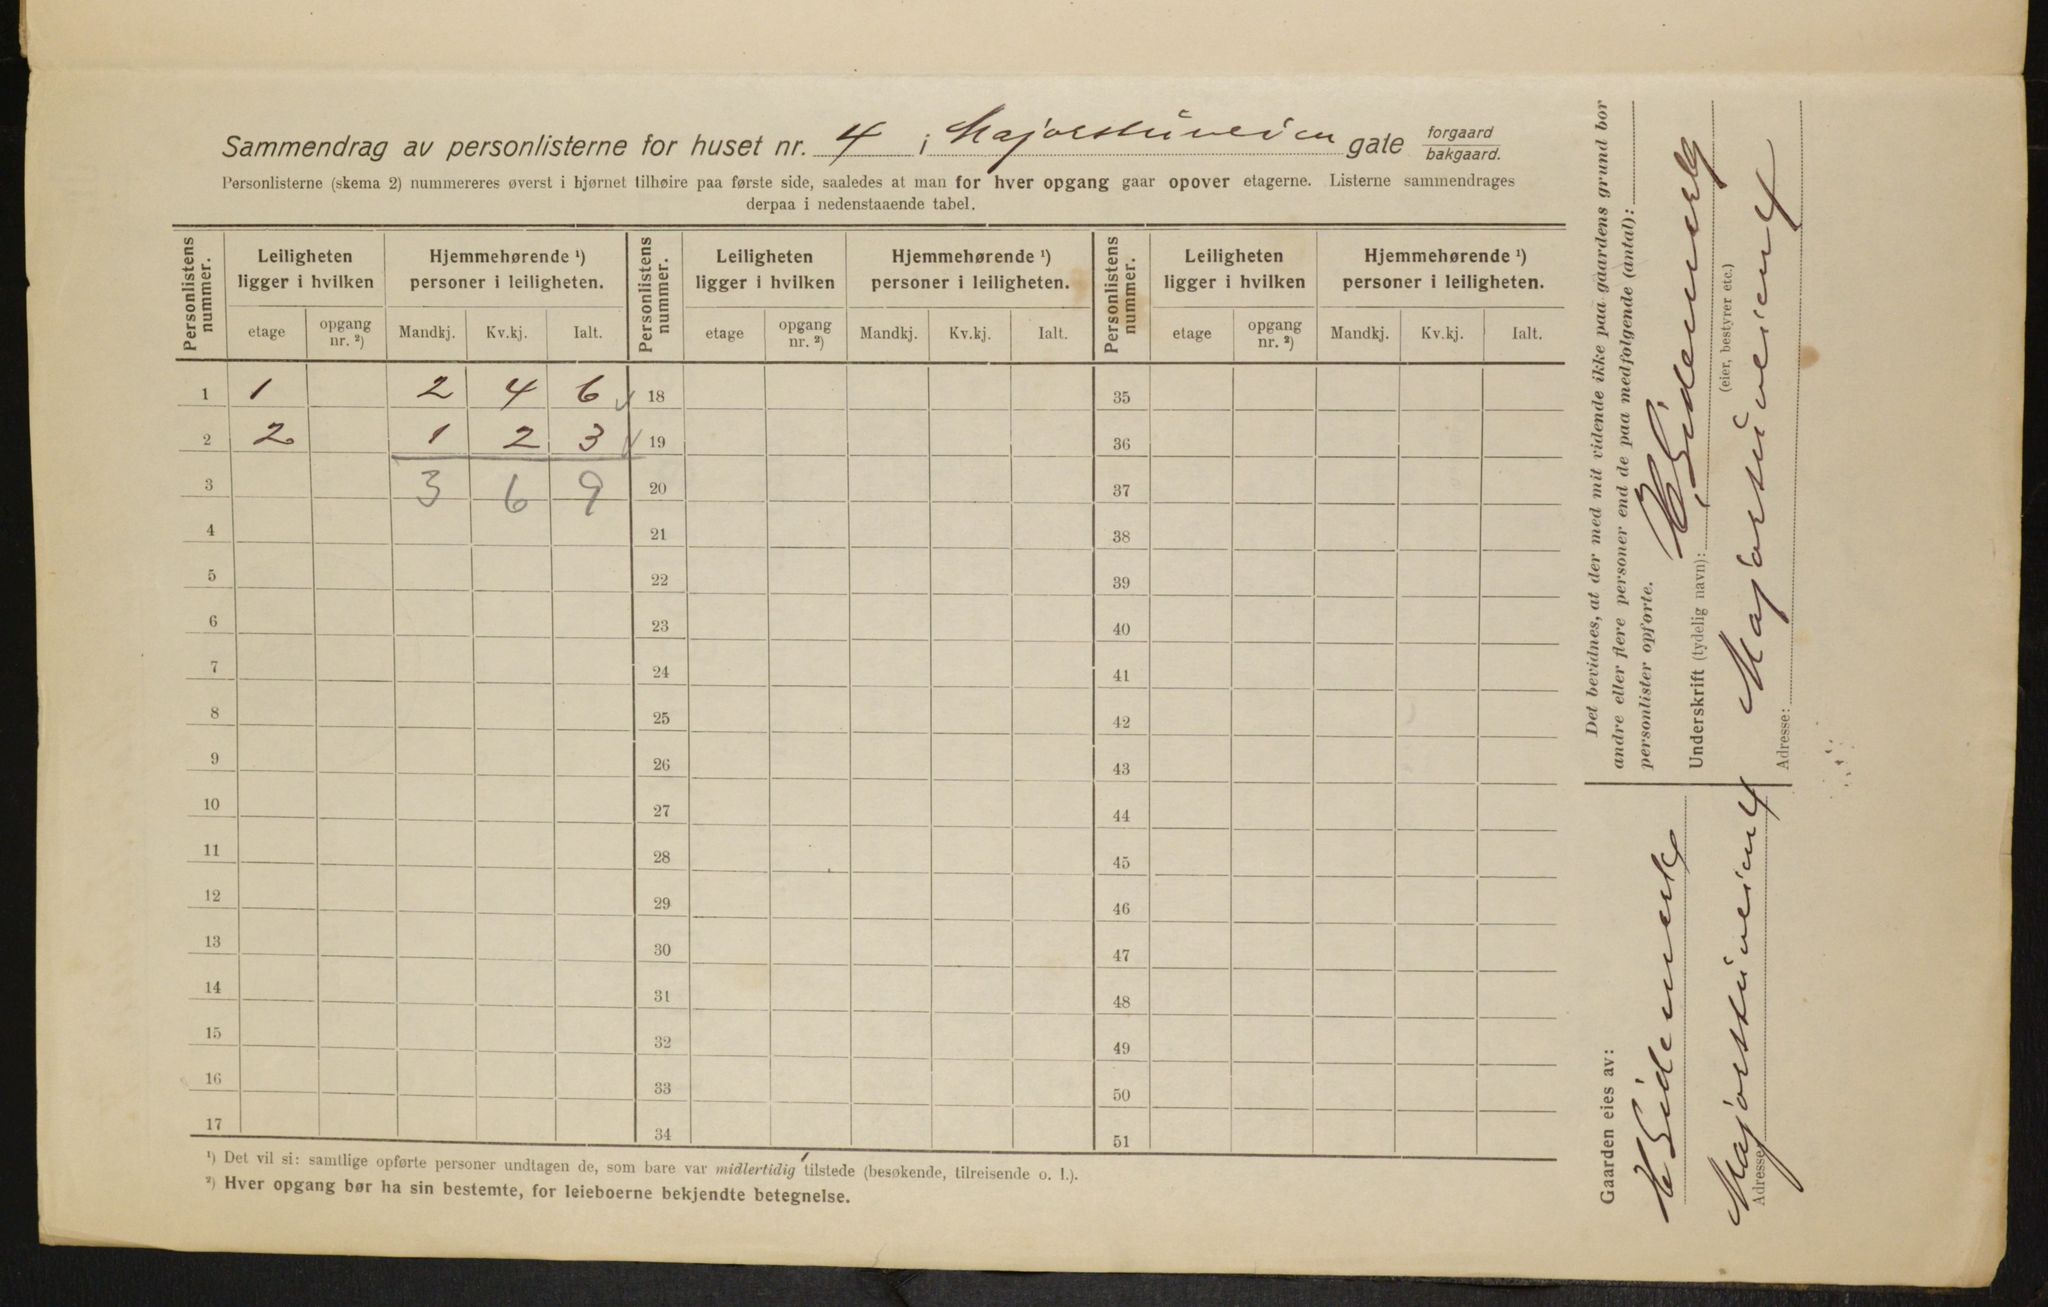 Sammendrag av personlisterne for huset nr. 4 i Majorstuveien gate forgaard bakgaard.
Personlisterne (skema 2) nummereres øverst i hjørnet tilhøire paa første side, saaledes at man for hver opgang gaar opover etagerne. Listerne sammendrages
derpaa i nedenstaaende tabel.
Personlistens nummer. Leiligheten ligger i hvilken Hjemmehørende ¹) personer i leiligheten. Personlistens nummer. Leiligheten ligger i hvilken Hjemmehørende ¹) personer i leiligheten. Personlistens nummer. Leiligheten ligger i hvilken Hjemmehørende ¹) personer i leiligheten.
etage opgang nr. ²) Mandkj. Kv.kj. Ialt. etage opgang nr. ²) Mandkj. Kv.kj. Ialt. etage opgang nr. ²) Mandkj. Kv.kj. Ialt.
1 1 2 4 6 18 35
2 2 1 2 3 19 36
3 3 6 9 20 37
4 21 38
5 22 39
6 23 40
7 24 41
8 25 42
9 26 43
10 27 44
11 28 45
12 29 46
13 30 47
14 31 48
15 32 49
16 33 50
17 34 51
¹) Det vil si: samtlige opførte personer undtagen de, som bare var midlertidig tilstede (besøkende, tilreisende o. l.).
²) Hver opgang bør ha sin bestemte, for leieboerne bekjendte betegnelse.
Det bevidnes, at der med mit vidende ikke paa gaardens grund bor
andre eller flere personer end de paa medfølgende (antal):
personlister opførte.
Underskrift (tydelig navn):
(eier, bestyrer etc.)
Majorstuveien 4
Adresse:
Gaarden eies av:
Majorstuveien 4
Adresse: